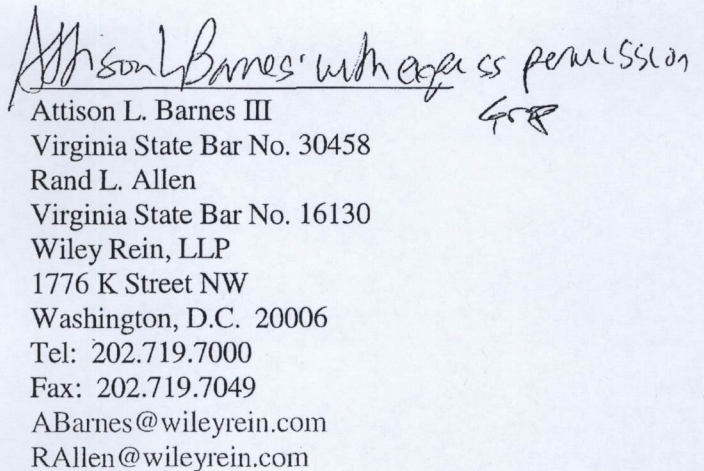 Attison L Barnes with express permission
Attison L. Barnes III
Virginia State Bar No. 30458
Rand L. Allen
Virginia State Bar No. 16130
Wiley Rein, LLP
1776 K Street NW
Washington, D.C. 20006
Tel: 202.719.7000
Fax: 202.719.7049
ABarnes@wileyrein.com
RAllen@wileyrein.com